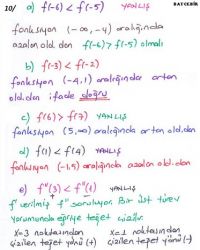 BATCEBİR
10/ a) f(-6) < f(-5) YANLIŞ
fonksiyon (-∞, -4) aralığında
azalan old.den f(-6) > f(-5) olmalı
b) f(-3) < f(-2)
fonksiyon (-4,1) aralığında artan
old.den ifade doğru
c) f(6) > f(7) YANLIŞ
fonksiyon (5,∞) aralığında artan old.dan
d) f(1) < f(4) YANLIŞ
fonksiyon (-1,5) aralığında azalan old.dan
e) f''(3) < f''(1) YANLIŞ
f' verilmiş f'' soruluyor. Bir üst türev
yorumunda eğriye teğet çizilir.
x=3 noktasından x=1 noktasından
çizilen teğet yönü (+) çizilen teğet yönü (-)